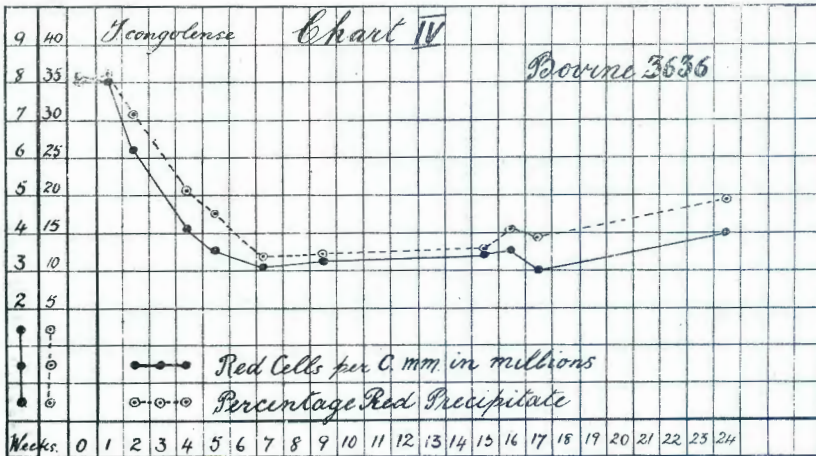 T congolense Chart IV
Bovine 3636
9 40
8 35
7 30
6 25
5 20
4 15
3 10
2 5
Red Cells per C. mm. in millions
Percentage Red Precipitate
Weeks. 0 1 2 3 4 5 6 7 8 9 10 11 12 13 14 15 16 17 18 19 20 21 22 23 24